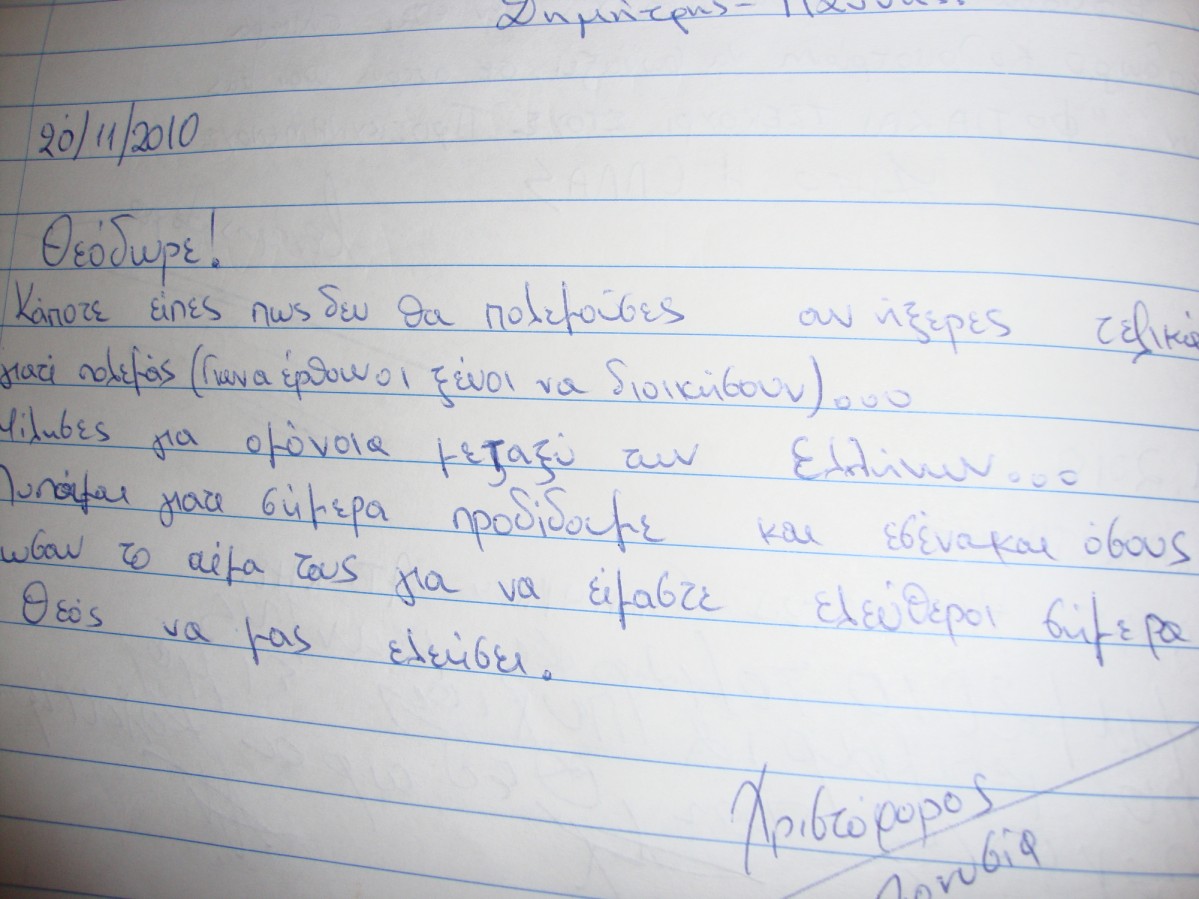 Δημήτρης -
20/11/2010
Θεόδωρε!
Κάποτε είπες πως δεν θα πολεμούσες αν ήξερες τελικά
γιατί πολεμάς (Για να έρθουν οι ξένοι να διοικήσουν)...
Μίλησες για ομόνοια μεταξύ των Ελλήνων...
Λυπάμαι γιατί σήμερα προδίδουμε και εσένα και όσους
ωσαν το αίμα τους για να είμαστε ελεύθεροι σήμερα
Θεός να μας ελεήσει.
Χριστόφορος